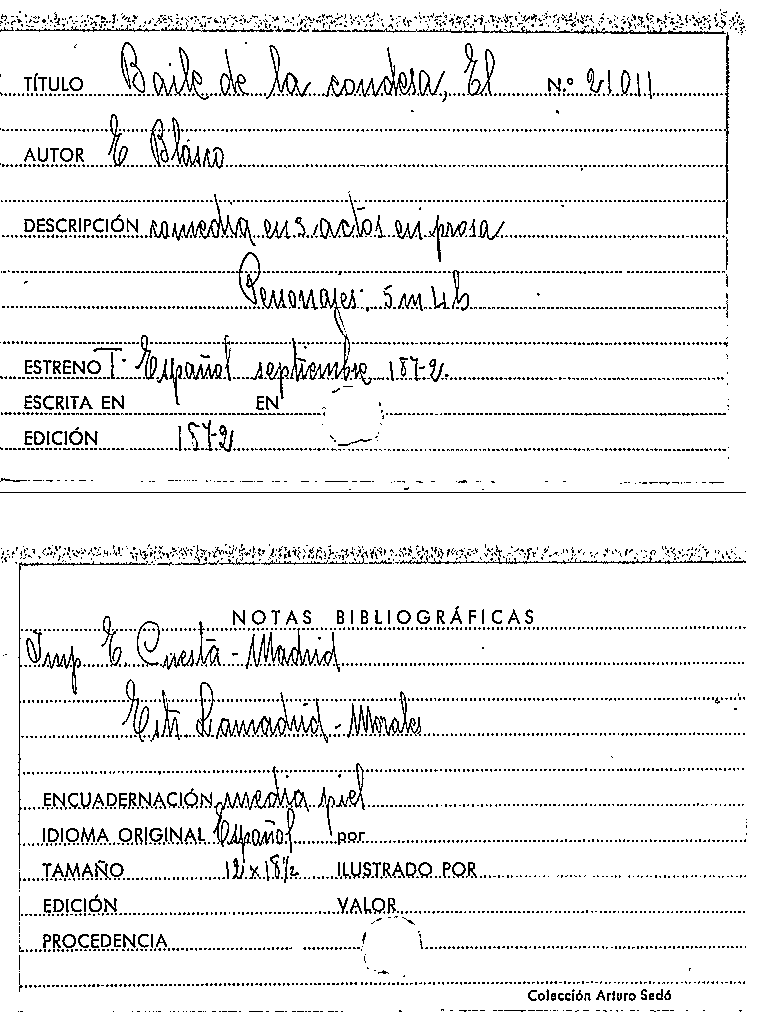 TÍTULO Baile de la condesa, El N.º 21011
AUTOR E Blasco
DESCRIPCIÓN comedia en 3 actos en prosa
Personajes: 5 m 4 h
ESTRENO T. Español septiembre 1872.
ESCRITA EN EN
EDICIÓN 1872
NOTAS BIBLIOGRÁFICAS
Imp E. Cuesta - Madrid
Estr. Lamadrid - Morales
ENCUADERNACIÓN media piel
IDIOMA ORIGINAL Español por
TAMAÑO 12 x 18½ ILUSTRADO POR
EDICIÓN VALOR
PROCEDENCIA
Colección Arturo Sedó